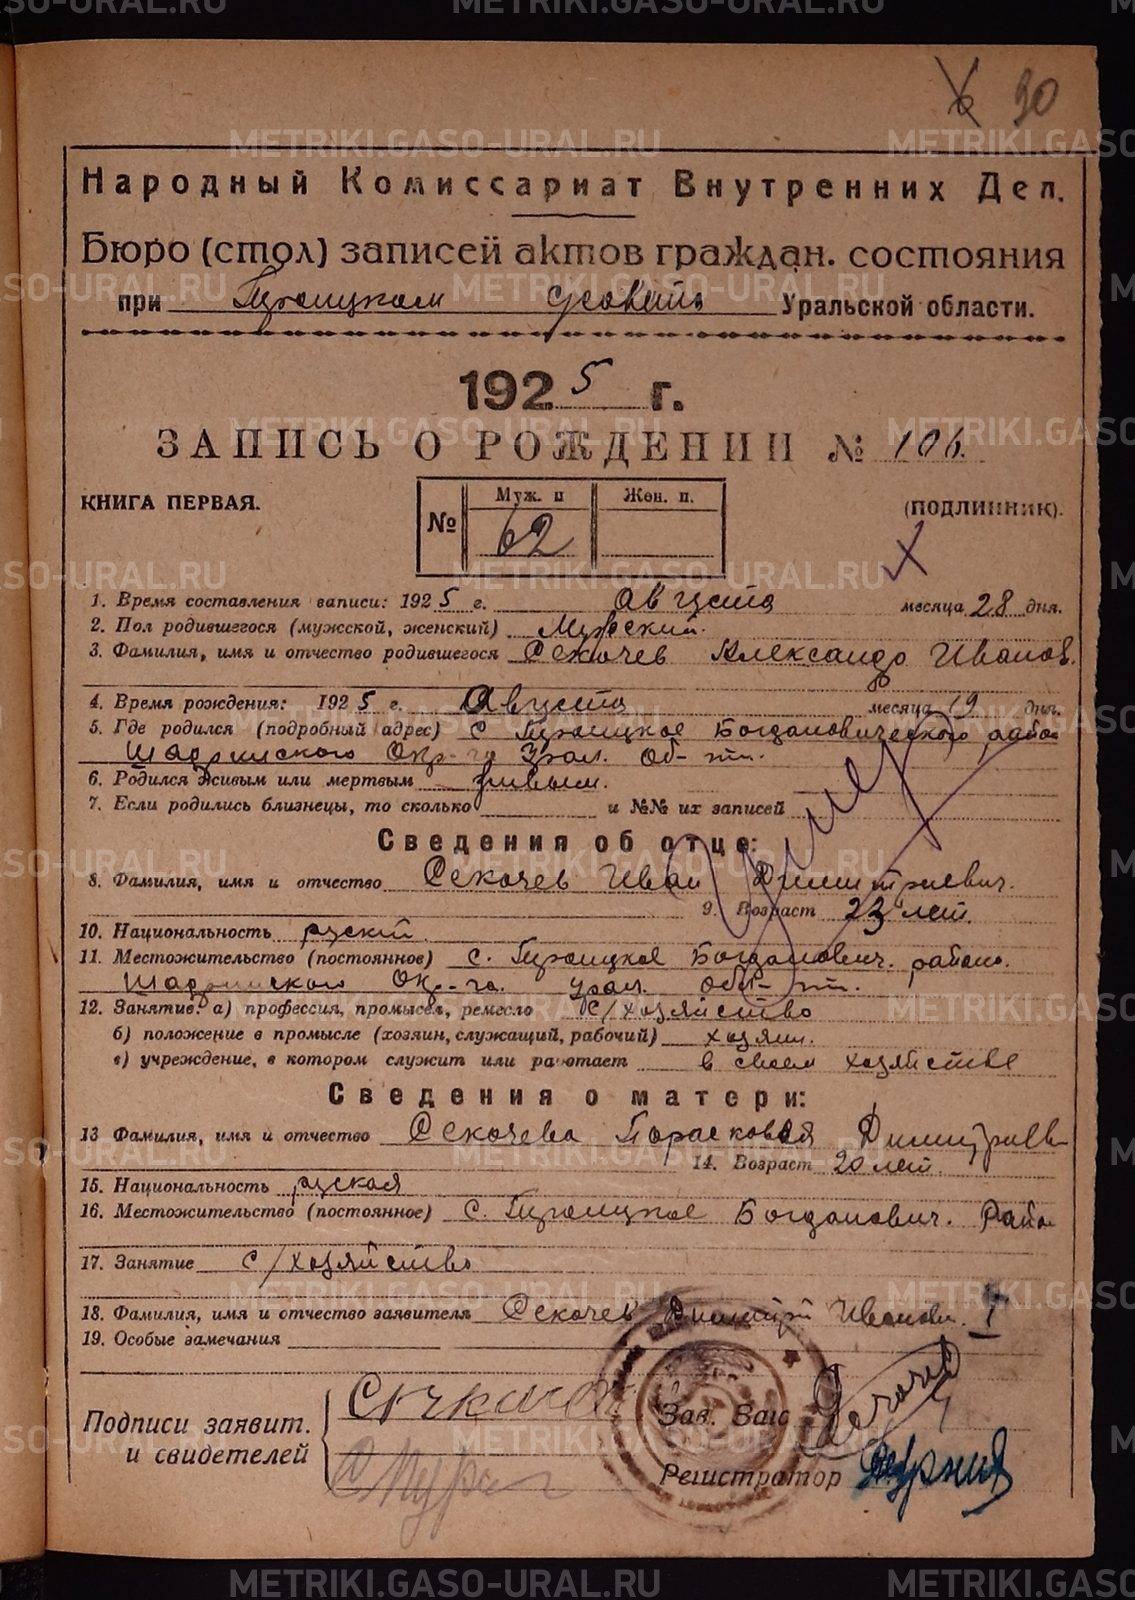 90
Народный Комиссариат Внутренних Дел.
Бюро (стол) записей актов граждан. состояния
при Троицком Уральской области.
1925 г.
ЗАПИСЬ О РОЖДЕНИИ № 106.
КНИГА ПЕРВАЯ.
№ Муж. п Жен. п.
62
(ПОДЛИННИК).
1. Время составления записи: 1925 г. Августа месяца 28 дня.
2. Пол родившегося (мужской, женский) Мужеский.
3. Фамилия, имя и отчество родившегося Секачев Александр Иванов.
4. Время рождения: 1925 г. Августа месяца 19 дня.
5. Где родился (подробный адрес) С Троицкое Богдановического район
Шадринского Окр-га Урал. Об-ти.
6. Родился живым или мертвым живым.
7. Если родились близнецы, то сколько и №№ их записей
Умер
Сведения об отце:
8. Фамилия, имя и отчество Секачев Иван Димитриевич.
9. Возраст 23 лет.
10. Национальность руский.
11. Местожительство (постоянное) с. Троицкое Богданович. района.
Шадринского Окр-га. Урал. Обл-ти.
12. Занятие: а) профессия, промысел, ремесло С/хозяйство
б) положение в промысле (хозяин, служащий, рабочий) хозяин.
в) учреждение, в котором служит или работает в своем хозяйстве
Сведения о матери:
13 Фамилия, имя и отчество Секачева Парасковья Димитриев
14. Возраст 20 лет.
15. Национальность руская
16. Местожительство (постоянное) С. Троицкое Богданович. Райо
17. Занятие С/хозяйство
18. Фамилия, имя и отчество заявителя Секачев Димитрий Иванови.
19. Особые замечания
Подписи заявит.
и свидетелей
Зав. Загс
Регистратор
METRIKI.GASO-URAL.RU